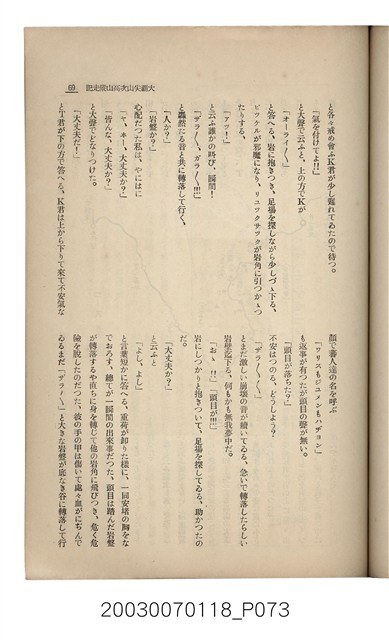 大覇尖山次高山縱走記
69
と各々戒め會ふＫ君が少し遲れてゐたので待つ。
「氣を付けてよ!!」
と大聲で云ふと、上の方でＫが
「オーライ〳〵」
と答へる、岩に抱きつき、足場を探しながら少しづゝ下る、
ピツケルが邪魔になり、リユツクサツクが岩角に引つかゝつ
たりする、
「アツ！」
と云ふ誰かの叫び、瞬間！
「ザラ〳〵、ガラ〳〵!!!」
と轟然たる音と共に轉落して行く、
「人か？」
「岩盤か？」
心配だつた私は、やにはに
「ヤ、ホー、大丈夫か？」
「皆んな、大丈夫か？」
と大聲でどなりつけた。
「大丈夫だ！」
とＴ君が下の方で答へる、Ｋ君は上から下りて來て不安氣な
顏で蕃人達の名を呼ぶ
「ワリスもジユメンもハヂヨン」
も返事が有つたが頭目の聲が無い。
「頭目が落ちた？」
不安はつのる、どうしよう？
「ザラ〳〵〳〵、
とまだ激しい崩壞の音が續いてゐる、急いで轉落したらしい
岩壁迄下る、何もかも無我夢中だ。
「おゝ!!」「頭目が!!!」
岩にしつかりと抱きついて、足場を探してゐる、助かつたの
だ。
「大丈夫か？」
と云ふと
「よし、よし」
と言葉短かに答へる、重荷が卸りた樣に、一同安堵の胸をな
でおろす、總てが一瞬間の出來事だつた、頭目は踏んだ岩盤
が轉落するや直ちに身を轉じて他の岩角に飛びつき、危く危
險を脫したのだつた、彼の手の甲は傷いて處々血がにぢんで
ゐるまだ「ザラ〳〵」と大きな岩盤が底なき谷に轉落して行
20030070118_P073